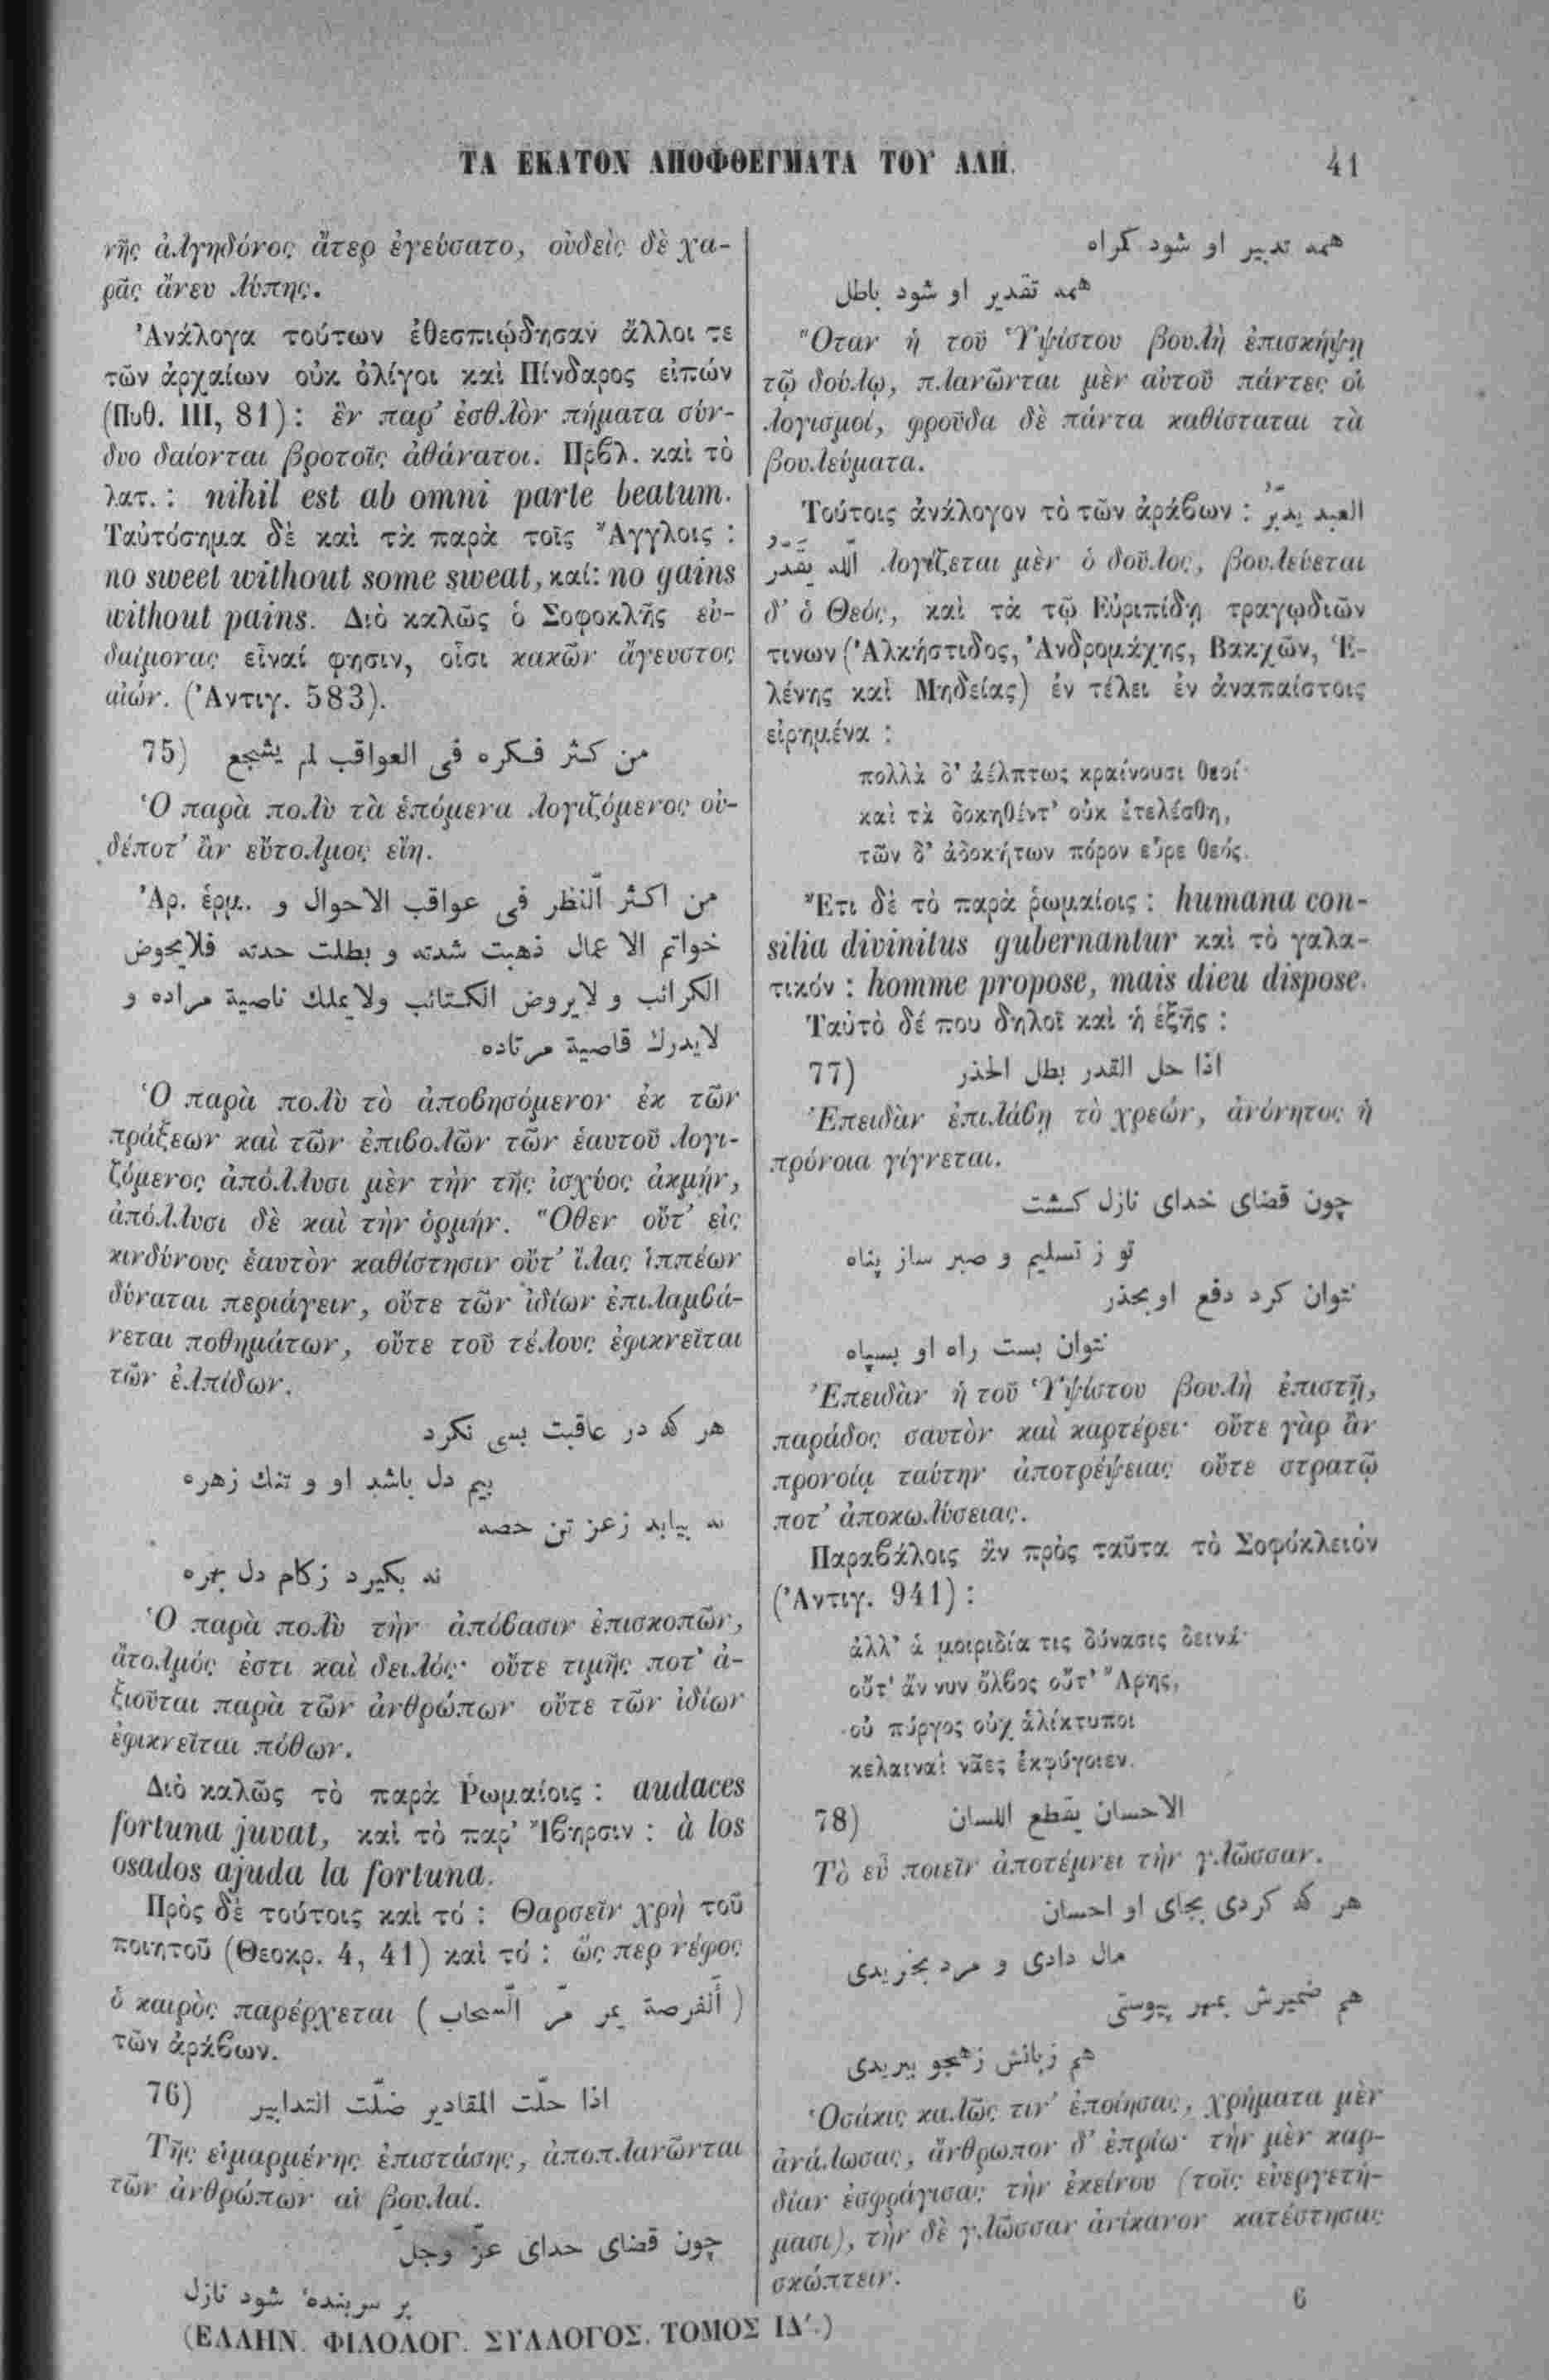 ΤΑ ΕΚΑΤΟΝ ΑΠΟΦΘΕΓΜΑΤΑ ΤΟΥ ΑΛΗ. 41
νῆς ἀλγηδόνος ἄτερ ἐγεύσατο, οὐδεὶς δὲ χα-
ρᾶς ἄνευ λύπης.
Ἀνάλογα τούτων ἐθεσπιῴδησαν ἄλλοι τε
τῶν ἀρχαίων οὐκ ὀλίγοι καὶ Πίνδαρος εἰπών
(Πυθ. III, 81): ἓν παρ' ἐσθλὸν πήματα σύν-
δυο δαίονται βροτοῖς ἀθάνατοι. Πρβλ. καὶ τὸ
λατ.: nihil est ab omni parte beatum.
Ταὐτόσημα δὲ καὶ τὰ παρὰ τοῖς Ἄγγλοις :
no sweet without some sweat, καί: no gains
without pains. Διὸ καλῶς ὁ Σοφοκλῆς εὐ-
δαίμονας εἶναί φησιν, οἷσι κακῶν ἄγευστος
αἰών. (Ἀντιγ. 583).
75) من كثر فكره فى العواقب لم يشجع
Ὁ παρὰ πολὺ τὰ ἑπόμενα λογιζόμενος οὐ-
δέποτ' ἂν εὔτολμος εἴη.
Ἀρ. ἑρμ. من اكثر النّظر فى عواقب الاحوال و
خواتم الاعمال ذهبت شدته و بطلت حدته فلايحوض
الكرائب و لايروض الكتائب ولايملك ناصية مراده و
لايدرك قاصية مرتاده
Ὁ παρὰ πολὺ τὸ ἀποβησόμενον ἐκ τῶν
πράξεων καὶ τῶν ἐπιβολῶν τῶν ἑαυτοῦ λογι-
ζόμενος ἀπόλλυσι μὲν τὴν τῆς ἰσχύος ἀκμήν,
ἀπόλλυσι δὲ καὶ τὴν ὁρμήν. Ὅθεν οὔτ' εἰς
κινδύνους ἑαυτὸν καθίστησιν οὔτ' ἴλας ἱππέων
δύναται περιάγειν, οὔτε τῶν ἰδίων ἐπιλαμβά-
νεται ποθημάτων, οὔτε τοῦ τέλους ἐφικνεῖται
τῶν ἐλπίδων.
هر كه در عاقبت بسى نكرد
بيم دل باشد او و تنك زهره
نه بيابد زعز تن حصه
نه بكيرد زكام دل بهره
Ὁ παρὰ πολὺ τὴν ἀπόβασιν ἐπισκοπῶν,
ἄτολμός ἐστι καὶ δειλός· οὔτε τιμῆς ποτ' ἀ-
ξιοῦται παρὰ τῶν ἀνθρώπων οὔτε τῶν ἰδίων
ἐφικνεῖται πόθων.
Διὸ καλῶς τὸ παρὰ Ῥωμαίοις : audaces
fortuna juvat, καὶ τὸ παρ' Ἴβηρσιν : à los
osados ajuda la fortuna.
Πρὸς δὲ τούτοις καὶ τό : Θαρσεῖν χρὴ τοῦ
ποιητοῦ (Θεοκρ. 4, 41) καὶ τό : ὥς περ νέφος
ὁ καιρὸς παρέρχεται (ألفرصة يمر مرّ السّحاب)
τῶν ἀράβων.
76) اذا حلّت المقادير ضلّت التدابير
Τῆς εἱμαρμένης ἐπιστάσης, ἀποπλανῶνται
τῶν ἀνθρώπων αἱ βουλαί.
چون قضاى حداى عزّ وجلّ
بر سر بنده شود نازل
همه تدبير او شود كمراه
همه تقدير او شود باطل
Ὅταν ἡ τοῦ Ὑψίστου βουλὴ ἐπισκήψῃ
τῷ δούλῳ, πλανῶνται μὲν αὐτοῦ πάντες οἱ
λογισμοί, φροῦδα δὲ πάντα καθίσταται τὰ
βουλεύματα.
Τούτοις ἀνάλογον τὸ τῶν ἀράβων : العبد يدبّر
اللّه يقدّر λογίζεται μὲν ὁ δοῦλος, βουλεύεται
δ' ὁ Θεός, καὶ τὰ τῷ Εὐριπίδῃ τραγῳδιῶν
τινων (Ἀλκήστιδος, Ἀνδρομάχης, Βακχῶν, Ἑ-
λένης καὶ Μηδείας) ἐν τέλει ἐν ἀναπαίστοις
εἰρημένα :
πολλὰ δ' ἀέλπτως κραίνουσι θεοί·
καὶ τὰ δοκηθέντ' οὐκ ἐτελέσθη,
τῶν δ' ἀδοκήτων πόρον εὗρε θεός.
Ἔτι δὲ τὸ παρὰ ῥωμαίοις : humana con-
silia divinitus gubernantur καὶ τὸ γαλα-
τικόν : homme propose, mais dieu dispose.
Ταὐτὸ δέ που δηλοῖ καὶ ἡ ἑξῆς :
77) اذا حل القدر بطل الحذر
Ἐπειδὰν ἐπιλάβῃ τὸ χρεών, ἀνόνητος ἡ
πρόνοια γίγνεται.
چون قضاى خداى نازل كشت
تو ز تسليم و صبر ساز پناه
نتوان كرد دفع او بحذر
نتوان بست راه او بسپاه
Ἐπειδὰν ἡ τοῦ Ὑψίστου βουλὴ ἐπιστῇ,
παράδος σαυτὸν καὶ καρτέρει· οὔτε γὰρ ἂν
προνοίᾳ ταύτην ἀποτρέψειας οὔτε στρατῷ
ποτ' ἀποκωλύσειας.
Παραβάλοις ἂν πρὸς ταῦτα τὸ Σοφόκλειόν
(Ἀντιγ. 941) :
ἀλλ' ἁ μοιριδία τις δύνασις δεινά·
οὔτ' ἄν νυν ὄλβος οὔτ' Ἄρης,
οὐ πύργος οὐχ ἁλίκτυποι
κελαιναὶ νᾶες ἐκφύγοιεν.
78) الاحسان يقطع اللسان
Τὸ εὖ ποιεῖν ἀποτέμνει τὴν γλῶσσαν.
هر كه كردى بجاى او احسان
مال دادى و مرد بخريدى
هم ضميرش بمهر پيوستى
هم زبانش زهجو ببريدى
Ὁσάκις καλῶς τιν' ἐποίησας, χρήματα μὲν
ἀνάλωσας, ἄνθρωπον δ' ἐπρίω· τὴν μὲν καρ-
δίαν ἐσφράγισας τὴν ἐκείνου (τοῖς εὐεργετή-
μασι), τὴν δὲ γλῶσσαν ἀνίκανον κατέστησας
σκώπτειν.
6
(ΕΛΛΗΝ. ΦΙΛΟΛΟΓ. ΣΥΛΛΟΓΟΣ. ΤΟΜΟΣ ΙΔ'.)